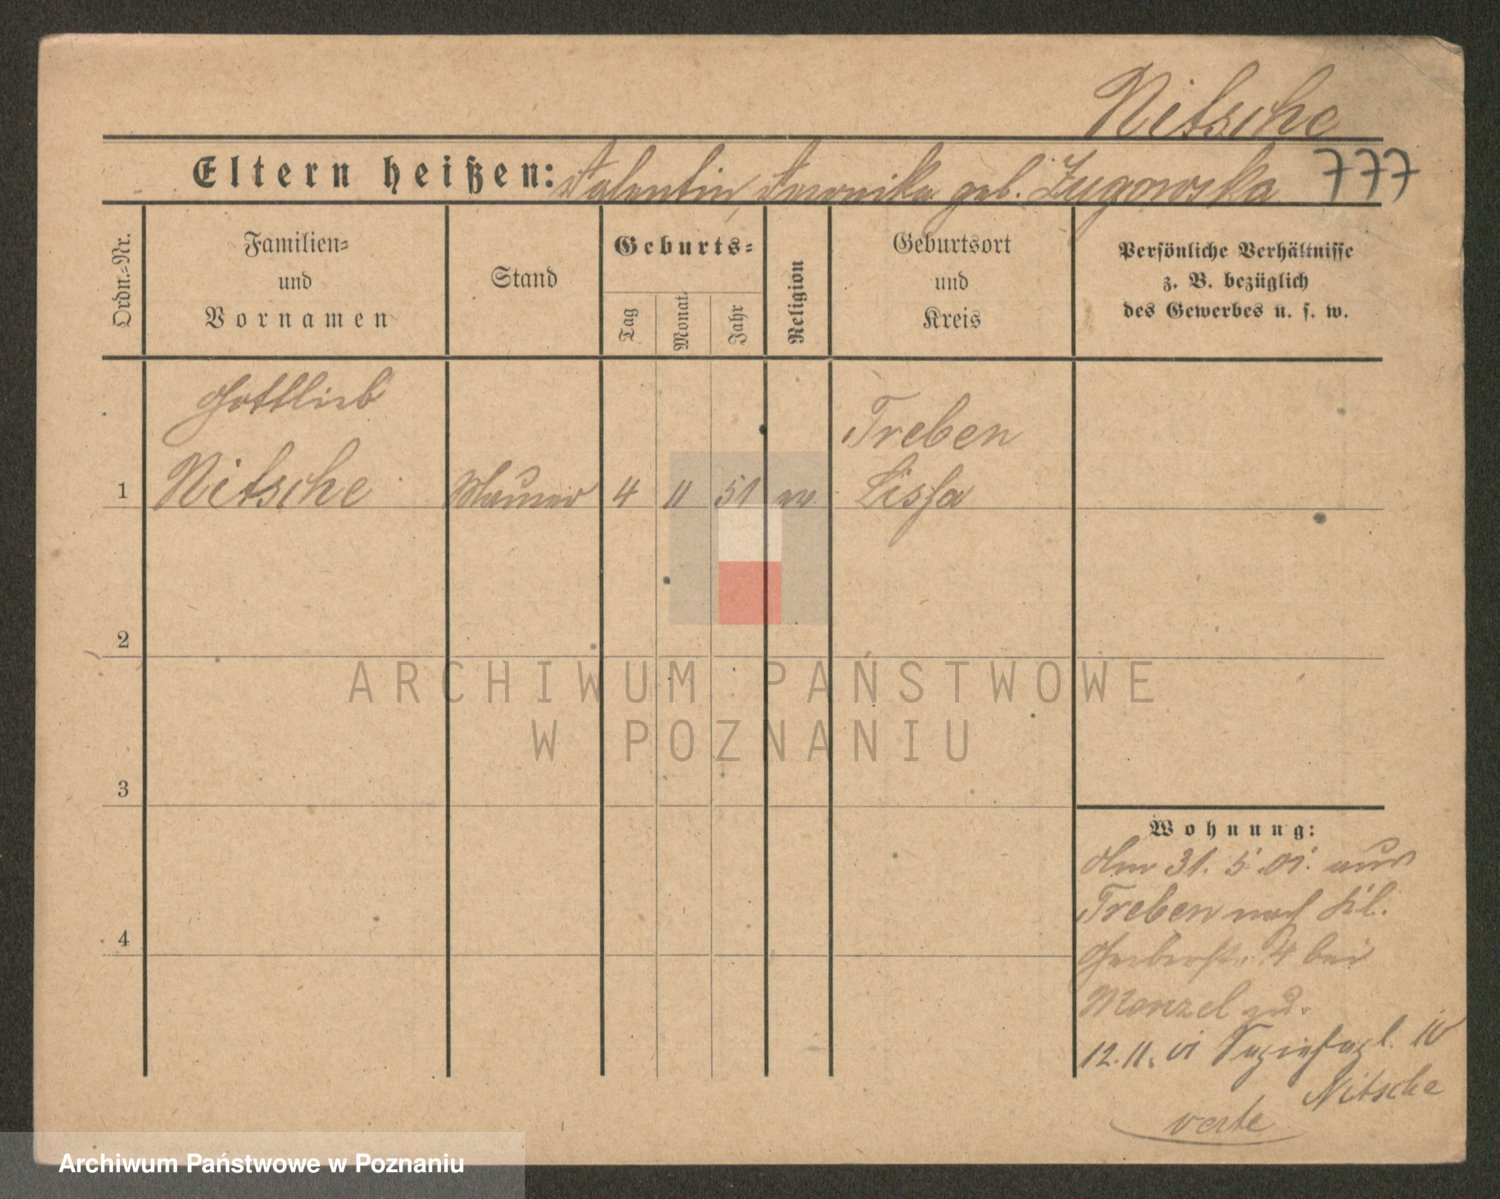 Nitsche
Eltern heißen: Valentin, Veronika geb. Zugowska 777
Ordn.-Nr.
Familien- und Vornamen
Stand
Geburts-
Tag
Monat.
Jahr
Religion
Geburtsort und Kreis
Persönliche Verhältnisse
z. B. bezüglich
des Gewerbes u. s. w.
Gottlieb
Treben
1 Nitsche Maurer 4 11 51 ev. Lissa
2
3
4
ARCHIWUM PAŃSTWOWE
W POZNANIU
Wohnung:
Am 31. 5. 01. aus
Treben nach
4 bei
Menzel zu.
12. 11. 01 10
Nitsche
verte
Archiwum Państwowe w Poznaniu